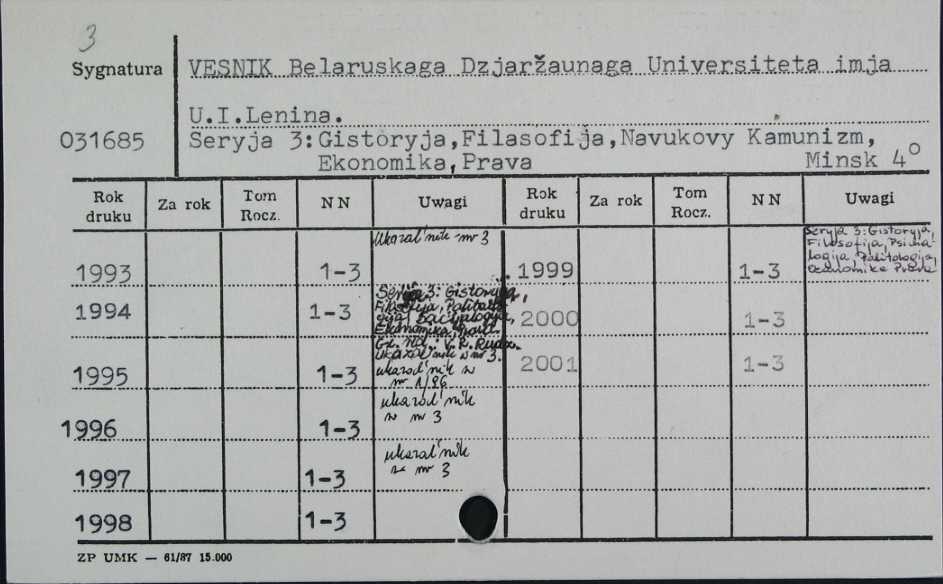 3
Sygnatura
VESNIK Belaruskaga Dzjaržaunaga Universiteta imja
U.I.Lenina.
031685
Seryja 3:Gistoryja,Filasofija,Navukovy Kamunizm,
Ekonomika,Prava Minsk 4°
Rok druku Za rok Tom Rocz. NN Uwagi Rok druku Za rok Tom Rocz. NN Uwagi
1993 1-3 Ukazal'nik nr 3
1999 1-3 Seryja 3: Gistoryja,
Filosofija, Psicha-
logija, Palitologija,
Ekanomika Prava
1994 1-3 Seryja 3: Gistoryja,
Filasofija, Palitalo-
gija, Sacyjalogija,
Ekanomika, prava.
Gł. red.: V.R. Rudz.
Ukazal'nik w nr 3.
2000 1-3
1995 1-3 ukazal'nik w
nr 1/96
2001 1-3
1996 1-3 ukazal'nik
w nr 3
1997 1-3 ukazal'nik
w nr 3
1998 1-3
ZP UMK — 61/87 15.000